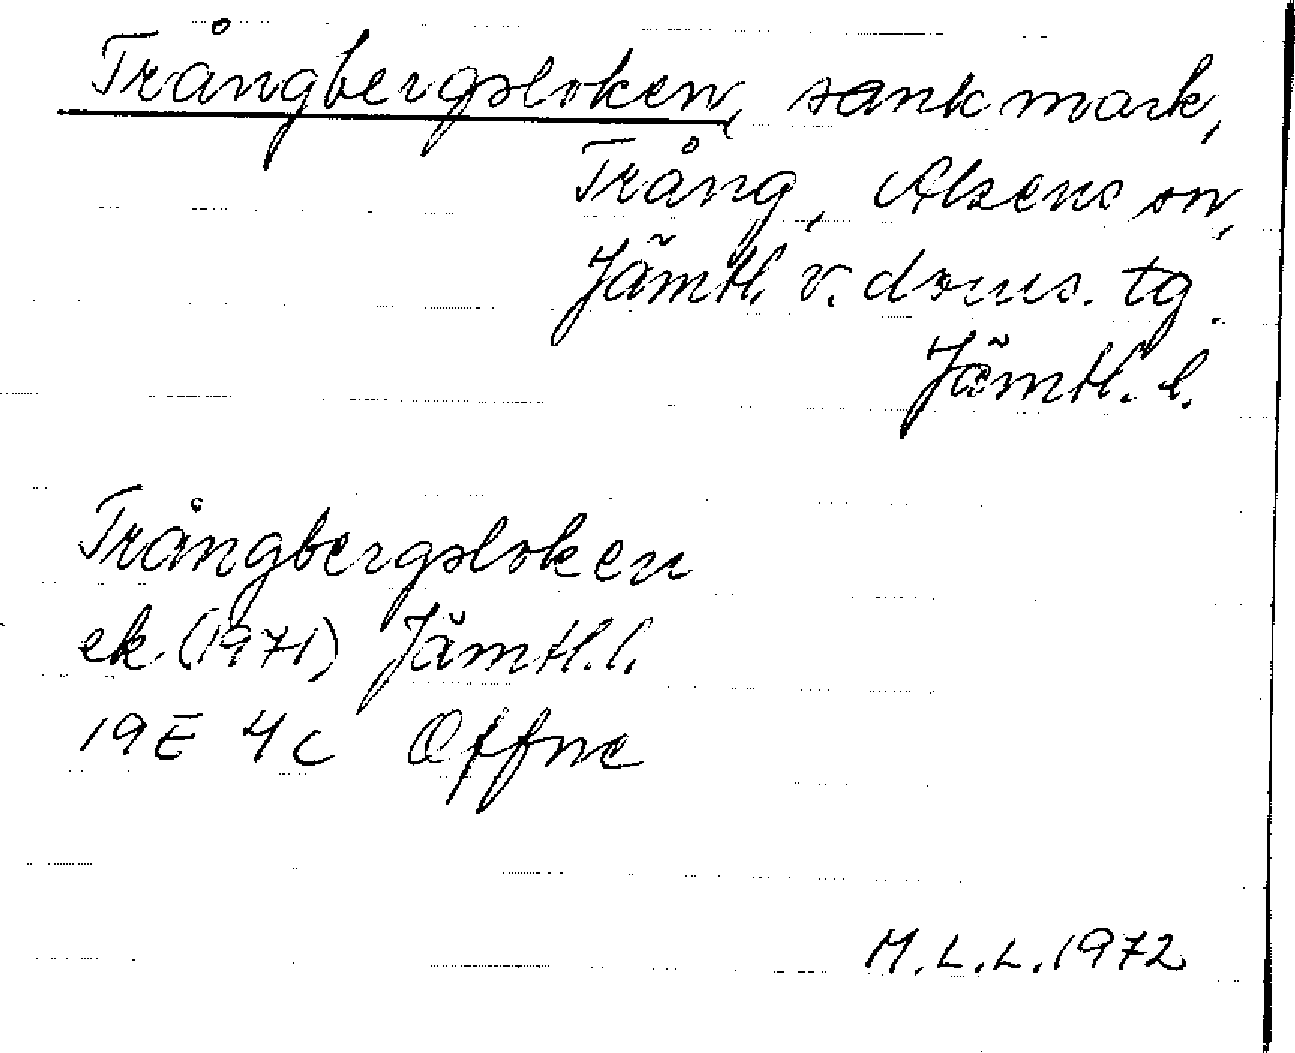 Trångbergsloken, sankmark,
Trång, Alsens sn,
Jämtl. v. doms. tg
Jämtl. l.
Trångbergsloken
ek. (1971) Jämtl. l.
19E 4c Offne
M.L.L. 1972